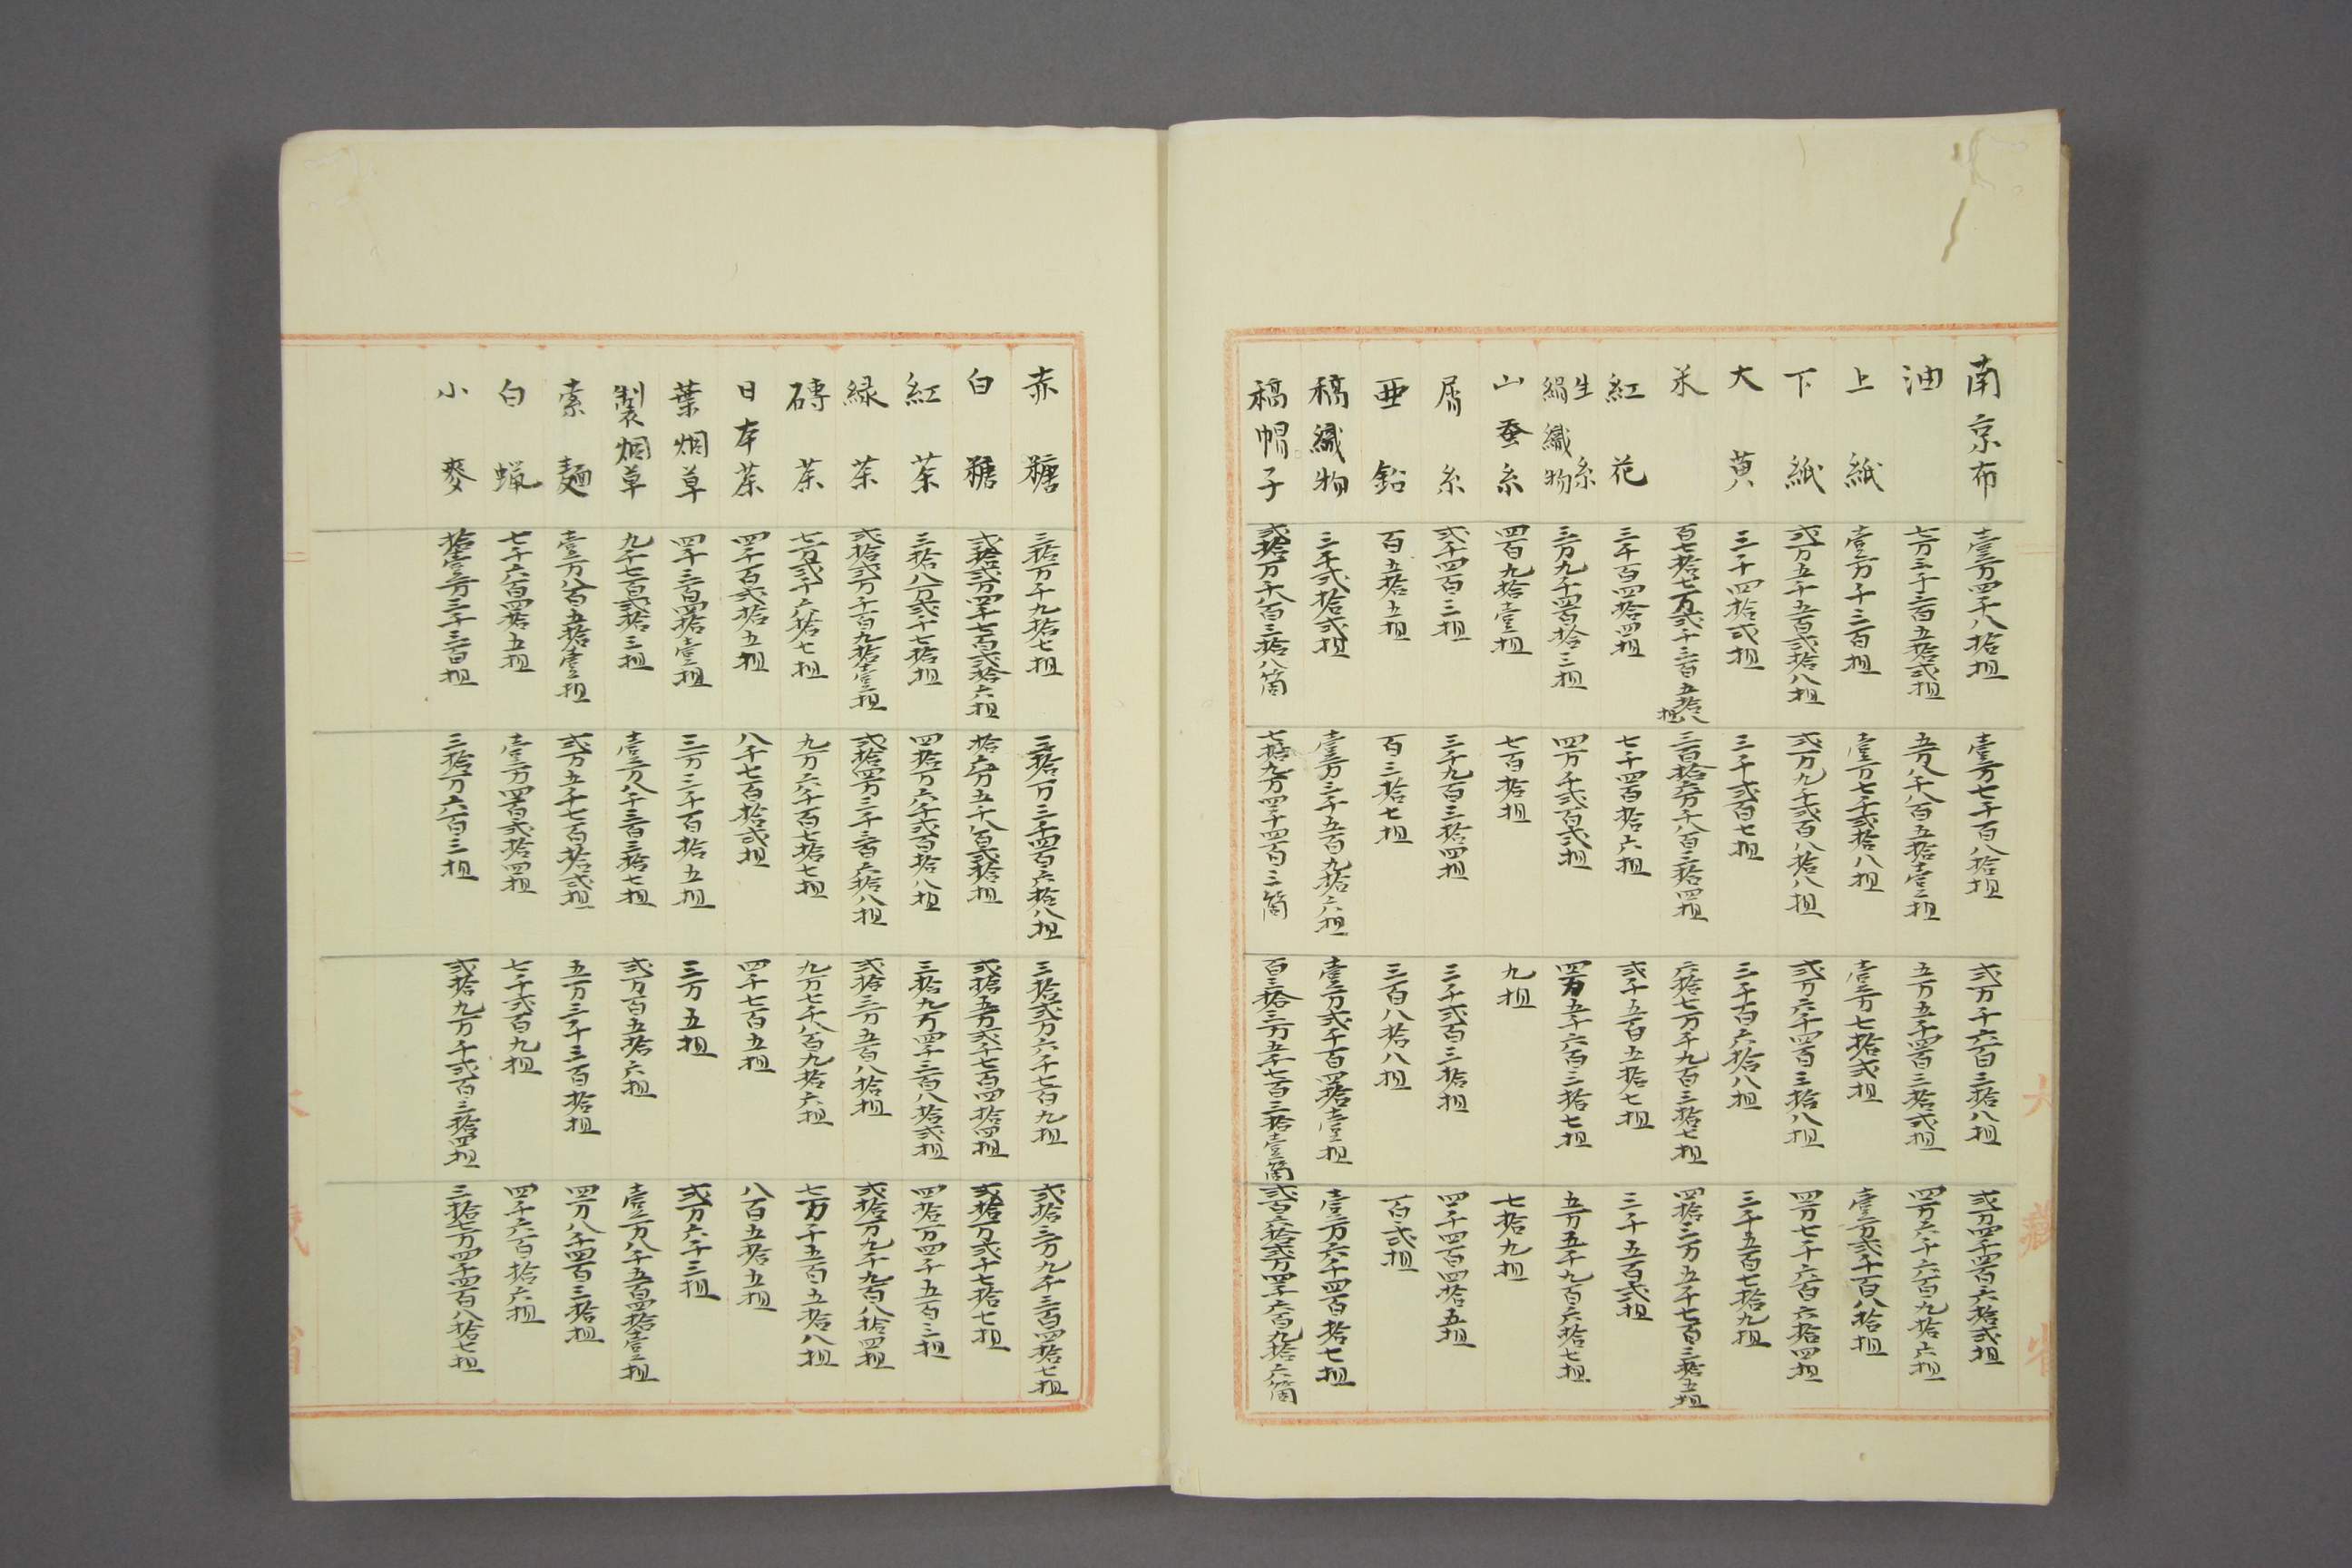 南京布 壹万四千八拾担 壹万七千百八拾担 弐万千六百三拾八担 弐万四千四百六拾弐担
油 七万三千三百五拾弐担 五万八千八百五拾壹担 五万五千四百三拾弐担 四万六千六百九拾六担
上紙 壹万千三百担 壹万七千弐拾八担 壹万七拾弐担 壹万弐千百八拾担
下紙 弐万五千五百弐拾八担 弐万九千弐百八拾八担 弐万六千四百三拾八担 四万七千六百六拾四担
大黄 三千四拾弐担 三千弐百七担 三千百六拾八担 三千五百七拾九担
米 百七拾七万弐千三百五拾八担 三百拾六万千八百三拾四担 六拾七万千九百三拾七担 四拾三万五千七百三拾五担
紅花 三千百四拾四担 七千四百拾六担 弐千五百五拾七担 三千五百弐担
生糸絹織物 三万九千四百拾三担 四万千弐百弐担 四万五千六百三拾七担 五万五千九百六拾七担
山蚕糸 四百九拾壹担 七百拾担 九担 七拾九担
屑糸 弐千四百三担 三千九百三拾四担 三千弐百三拾担 四千四百四拾五担
亜鉛 百五拾五担 百三拾七担 三百八拾八担 百弐担
稿織物 三千弐拾弐担 壹万三千五百九拾六担 壹万弐千百四拾壹担 壹万六千四百拾七担
稿帽子 弐拾万千八百三拾八箇 七拾九万四千四百三箇 百三拾三万五千七百三拾壹箇 弐百六拾弐万四千六百九拾六箇
赤糖 三拾万千九拾七担 三拾万三千四百六拾八担 三拾弐万六千七百九担 弐拾三万九千三百四拾七担
白糖 弐拾弐万四千七百弐拾六担 拾六万五千八百弐拾担 弐拾五万弐千七百四拾四担 弐拾万弐千七拾七担
紅茶 三拾八万弐千七拾担 四拾万六千弐百拾八担 三拾九万四千三百八拾弐担 四拾万四千五百三担
緑茶 弐拾弐万千百九拾壹担 弐拾四万三千三百六拾八担 弐拾三万五百八拾担 弐拾万九千九百八拾四担
磚茶 七万弐千六拾七担 九万六千百七拾七担 九万七千八百九拾六担 七万千五百五拾八担
日本茶 四千百弐拾五担 八千七百拾弐担 四千七百五担 八百五拾五担
葉烟草 四千三百四拾壹担 三万三千百拾五担 三万五担 弐万六千三担
製烟草 九千七百弐拾三担 壹万八千三百三拾七担 弐万百五拾六担 壹万八千五百四拾壹担
索麺 壹万八百五拾壹担 弐万五千七百拾弐担 五万三千三百拾担 四万八千四百三拾担
白蝋 七千六百四拾五担 壹万四百弐拾四担 七千弐百九担 四千六百拾六担
小麥 拾壹万三千三百担 三拾万六百三担 弐拾九万千弐百三拾四担 三拾七万四千四百八拾七担
大藏省